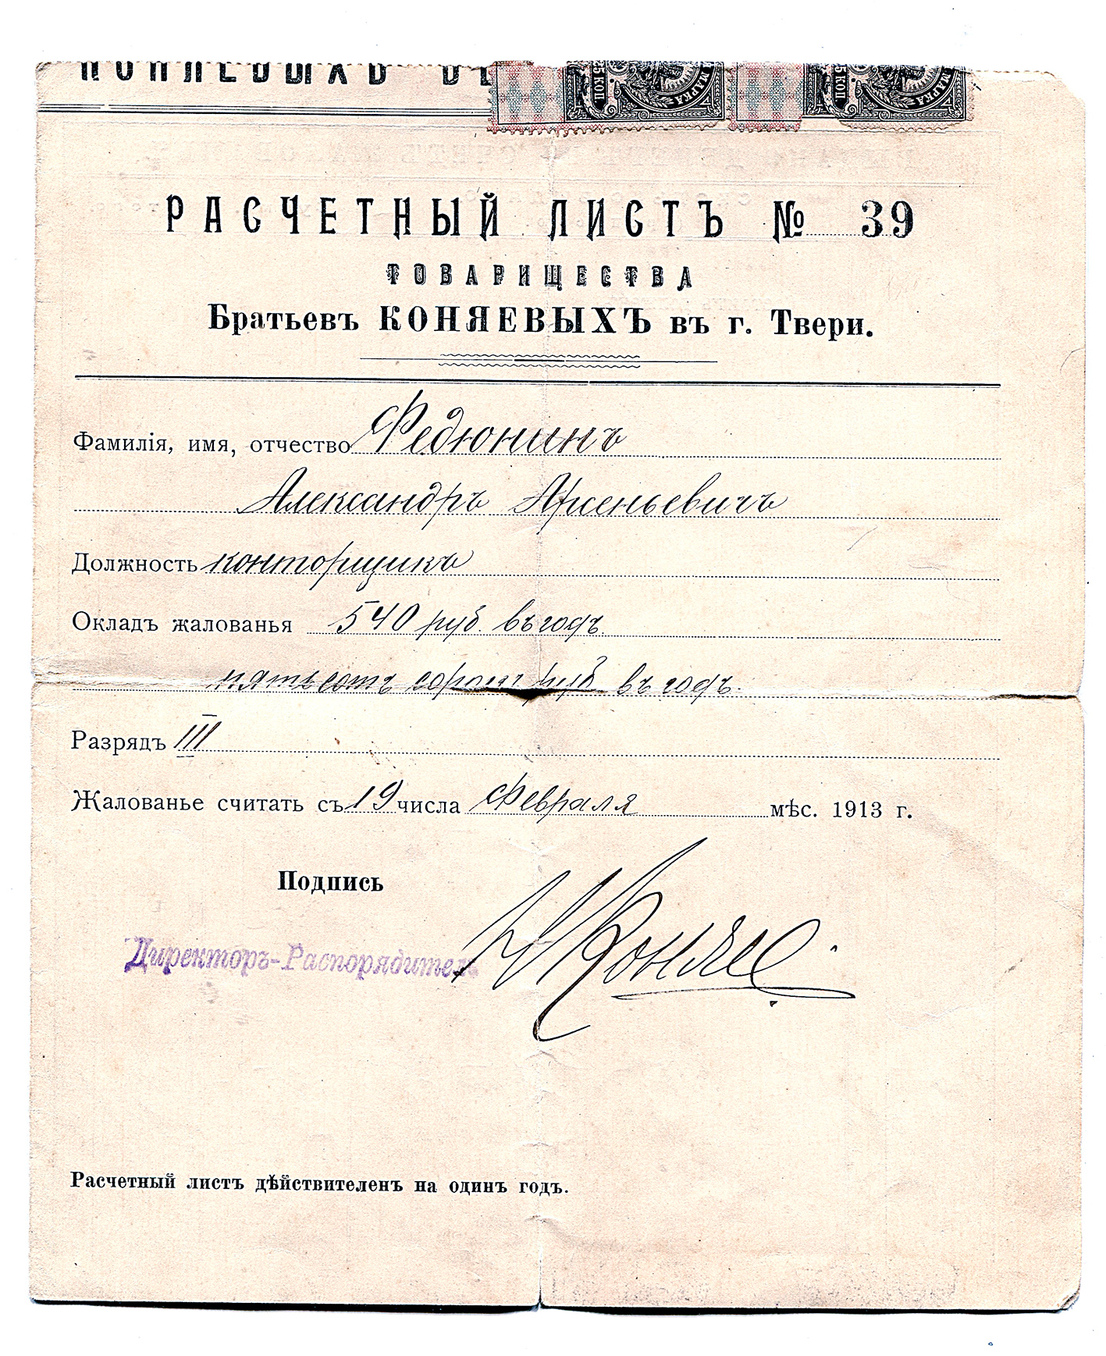 КОНЯЕВЫХЪ
5 КОП
МАРКА
5 КОП
МАРКА
РАСЧЕТНЫЙ ЛИСТЪ № 39
ТОВАРИЩЕСТВА
Братьевъ КОНЯЕВЫХЪ въ г. Твери.
Фамилія, имя, отчество Федюнинъ
Александръ Арсеньевичъ
Должность конторщикъ
Окладъ жалованья 540 руб. въ годъ
пятьсотъ сорокъ руб въ годъ.
Разрядъ III
Жалованье считать съ 19 числа Февраля мѣс. 1913 г.
Подпись
Директоръ-Распорядитель Коняев
Расчетный листъ дѣйствителенъ на одинъ годъ.